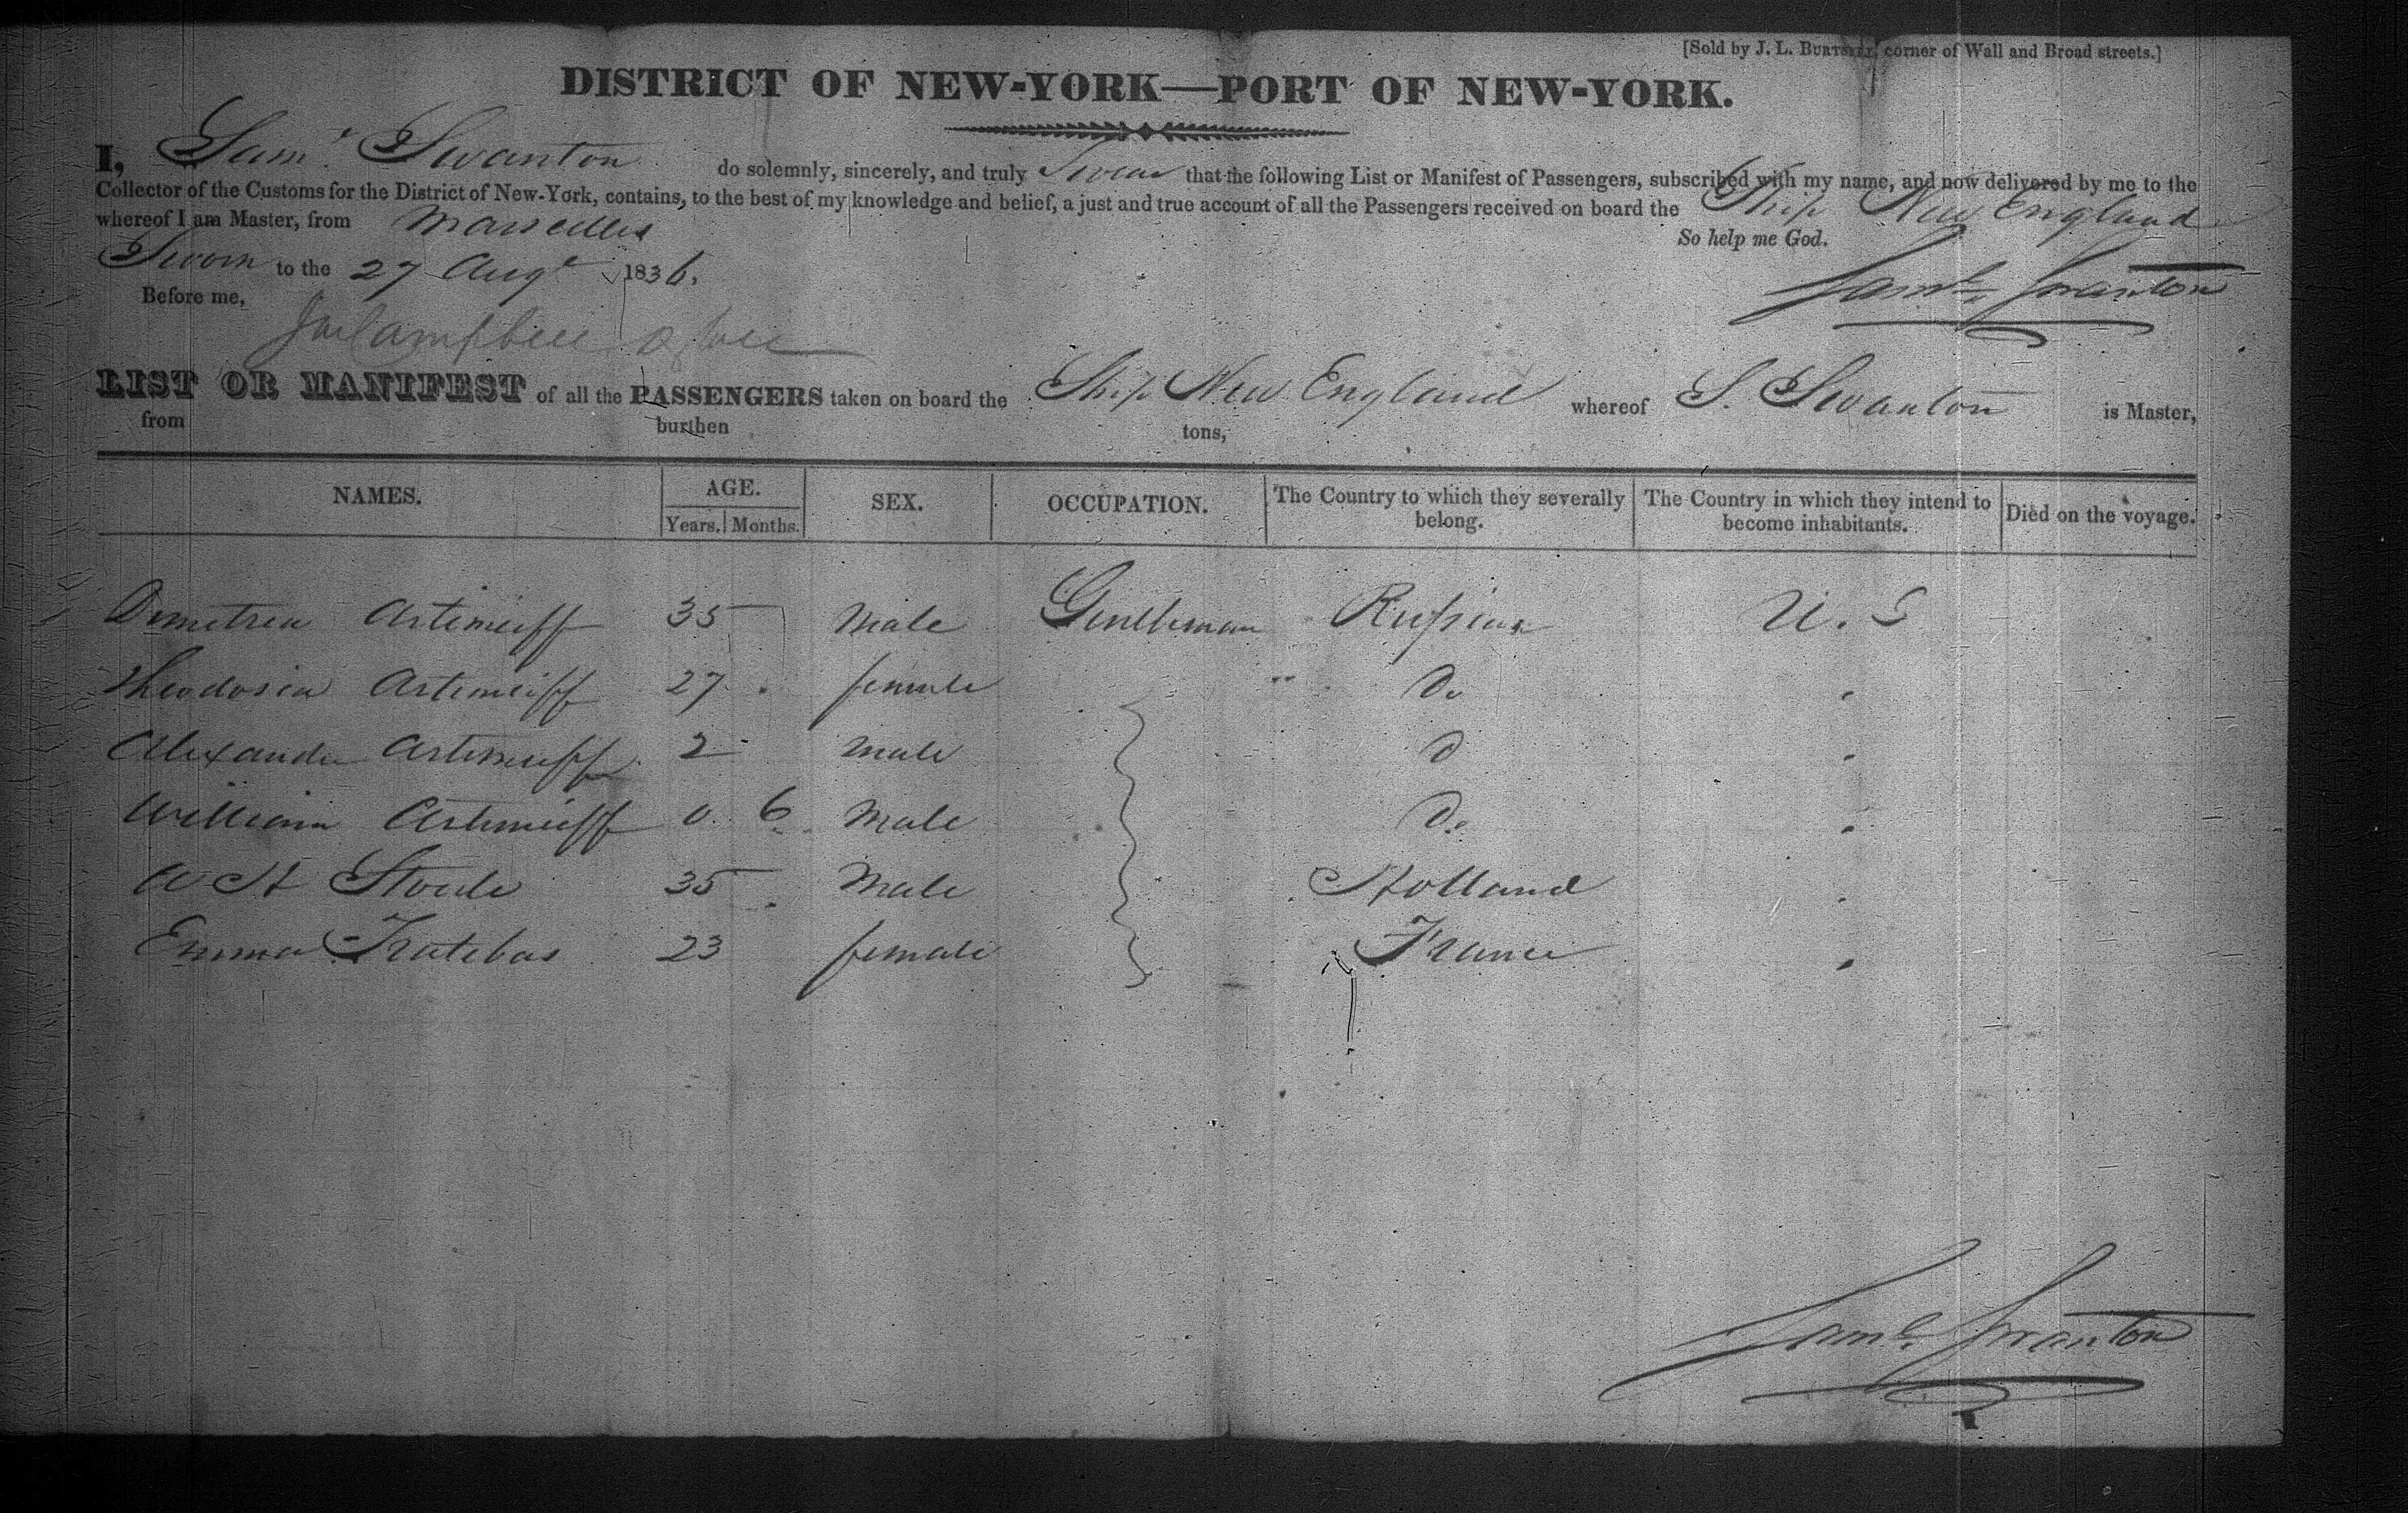 [Sold by J. L. BURTSELL, corner of Wall and Broad streets.]
DISTRICT OF NEW-YORK—PORT OF NEW-YORK.
I, Saml. Swanton do solemnly, sincerely, and truly Swear that the following List or Manifest of Passengers, subscribed with my name, and now delivered by me to the
Collector of the Customs for the District of New-York, contains, to the best of my knowledge and belief, a just and true account of all the Passengers received on board the Ship New England
whereof I am Master, from Marseilles
So help me God.
Sworn to the 27 Augt 1836.
Saml. Swanton
Before me,
Campbell
LIST OR MANIFEST of all the PASSENGERS taken on board the Ship New England whereof S. Swanton is Master,
from burthen tons,
NAMES. AGE. SEX. OCCUPATION. The Country to which they severally belong. The Country in which they intend to become inhabitants. Died on the voyage.
Years. Months.
Artimeiff 35 Male Gentleman Russian U. S
Theodosia Artimeiff 27 female " Do
Alexander Artimeiff 2 male D
William Artimeiff 0 6 Male Do
35 Male Holland
Emma 23 female France
Saml. Swanton